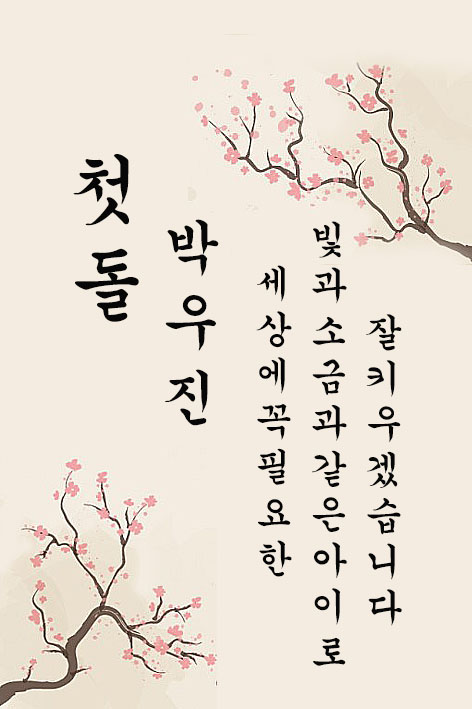 첫돌
박우진
세상에꼭필요한
빛과소금과같은아이로
잘키우겠습니다